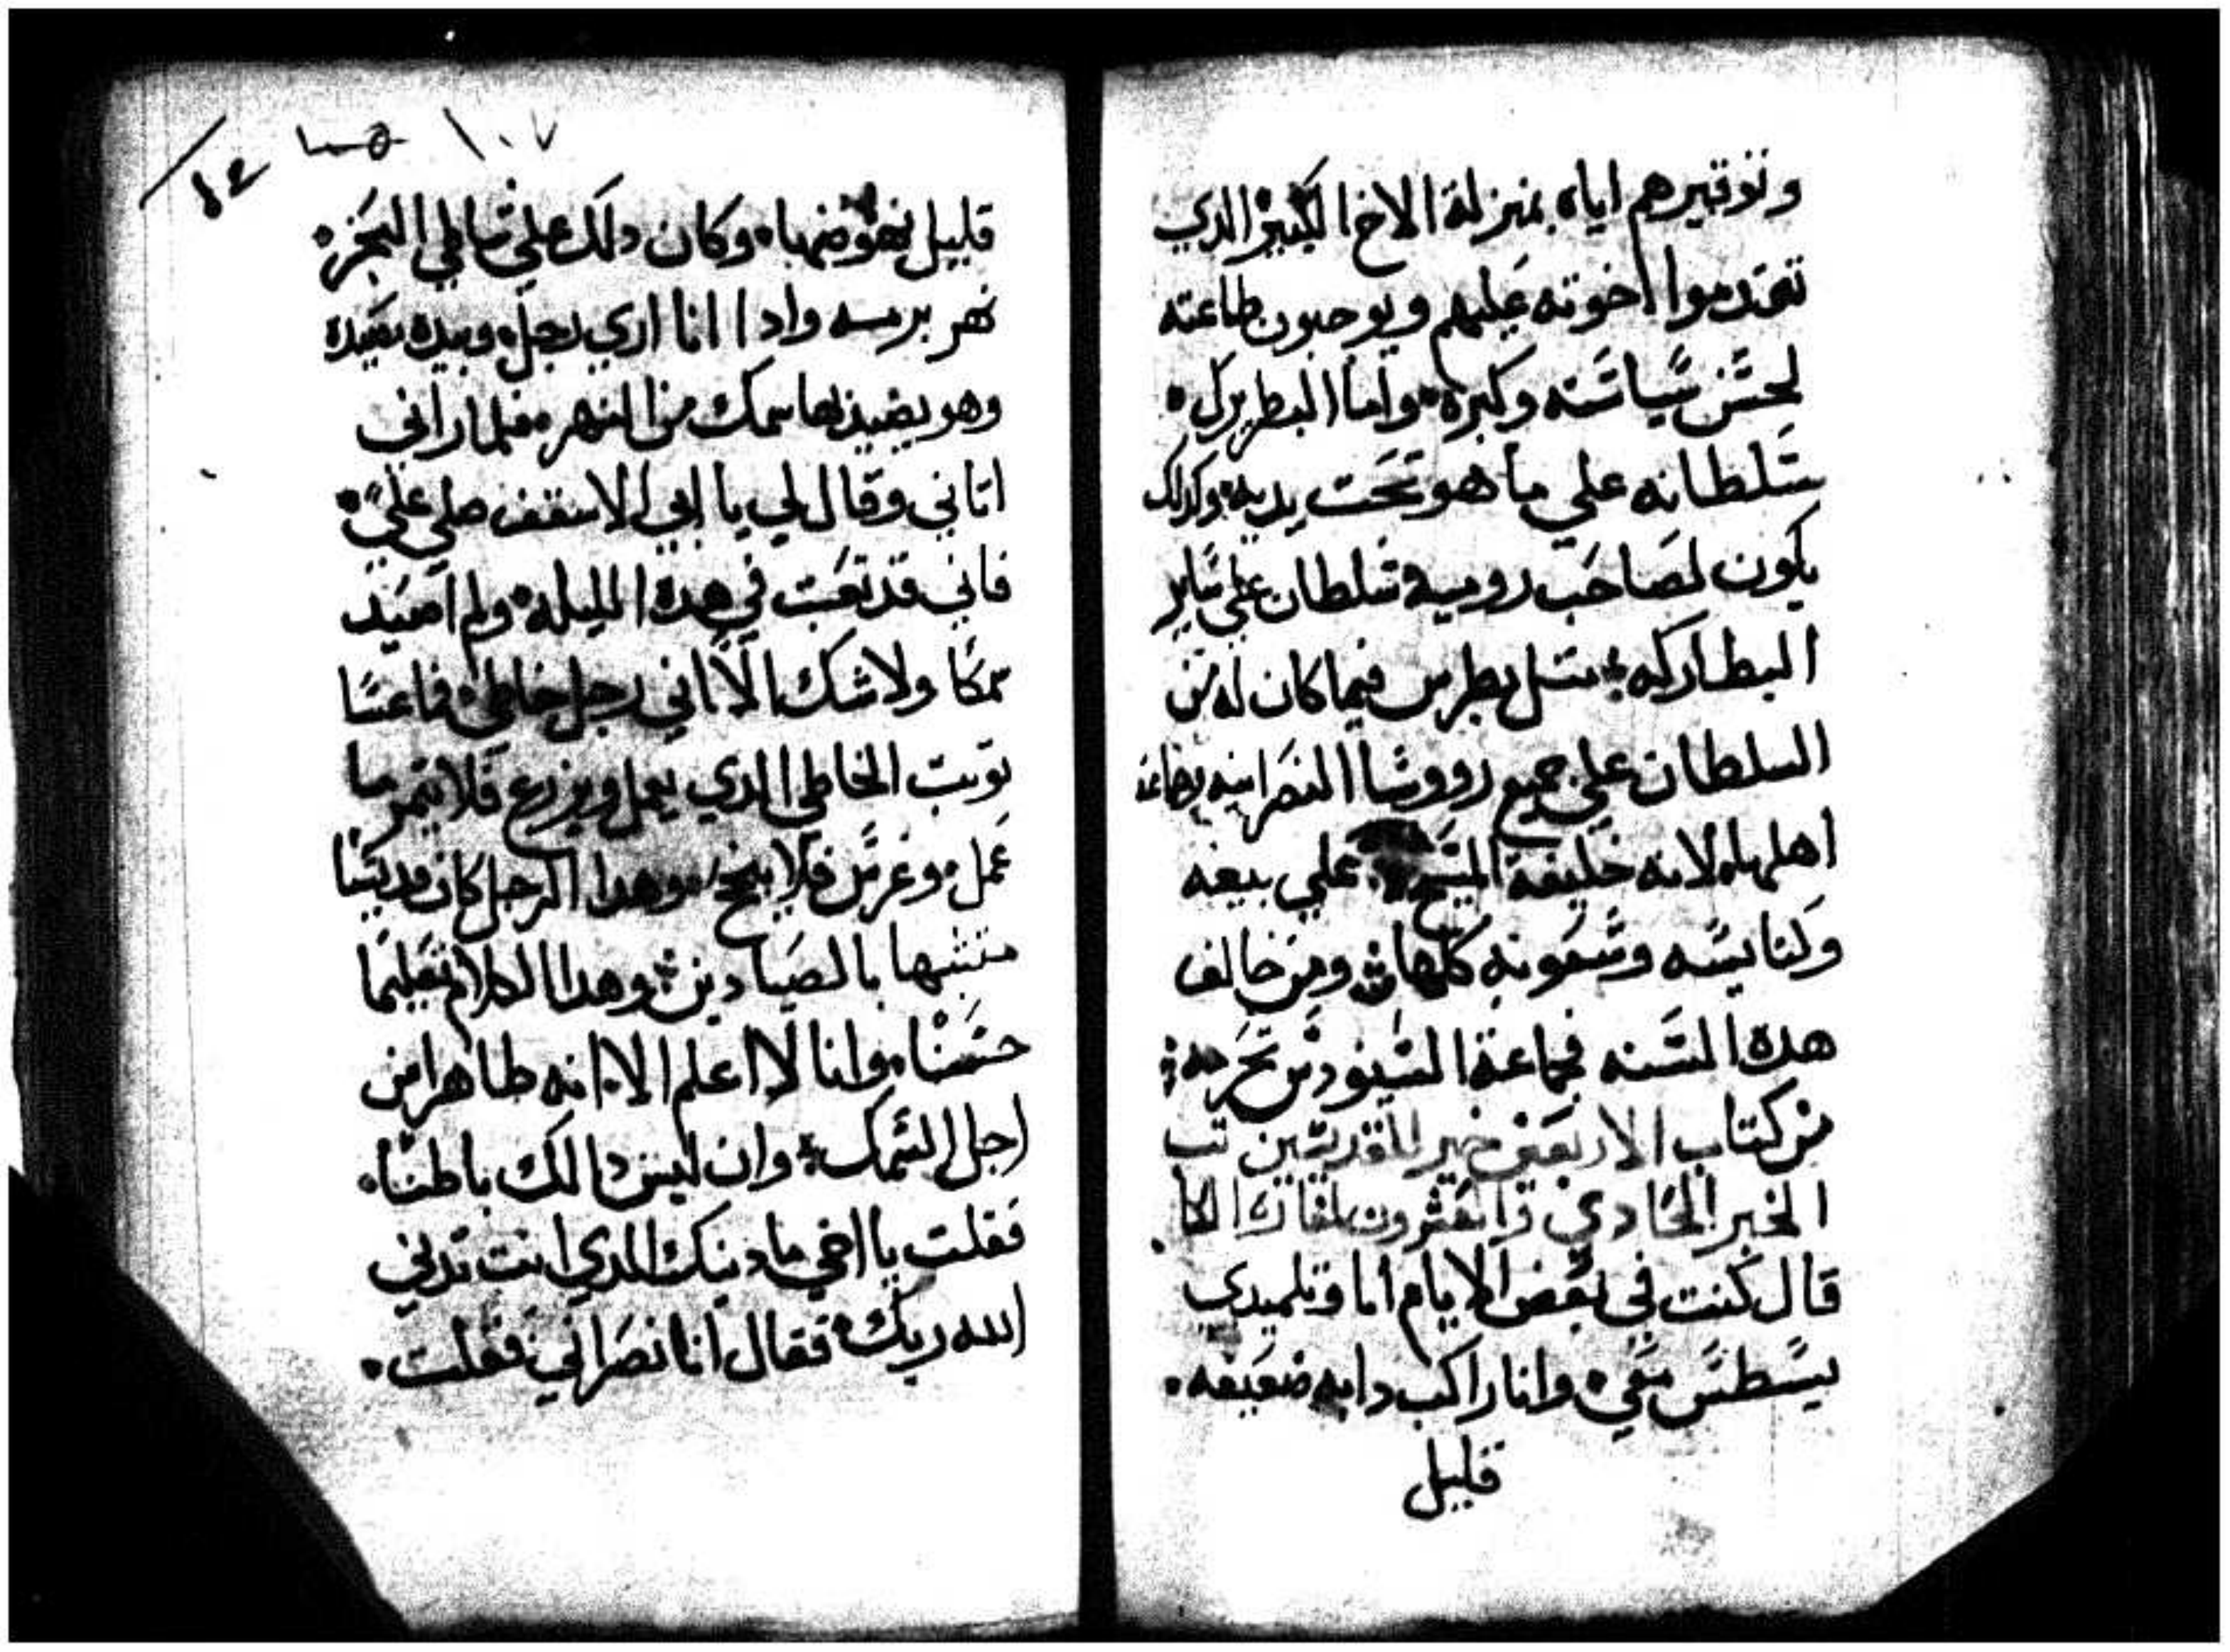 وتوقيرهم اياه بمنزلة الاخ الكبير الدي
تقدموا اخوته عليهم ويوجبون طاعته
لحسن سياسته وكبره واما البطريرك
سلطانه علي ما هو تحت يديه وكدلك
يكون لصاحب رومية سلطان علي ساير
البطاركه متل بطرس فيما كان له من
السلطان علي جميع رووسا النصرانيه
اهلها لانه خليفة المسيح علي بيعه
وكنايسه وشعوبه كلها ومن خالف
هده السنه فجماعة السينودس تحرمه
من كتاب الاربعين خبر للقديسين
الخبر الحادي والعشرون
قال كنت في بعض الايام انا وتلميدي
معي وانا راكب دابه ضعيفه
قليل
١٠٧
١٤
قليل وكان دلك علي شاطي البحر
نهر وادا انا اري رجل وبيده
وهو يصيد بها سمك من النهر فلما راني
اتاني وقال لي يا ابي الاسقف صلي علي
فاني قد تعبت في هده الليله ولم اصيد
سمكا ولا شك الا اني رجل خاطي فاعسا
توبت الخاطي الدي يعمل ويزرع فلا يتمر ما
عمل وغرس فلا ينجح وهدا الرجل كان قديسا
متشبها بالصيادين وهدا الكلام تعليما
حسنا وانا لا اعلم الا انه طاهرا من
اجل السمك وان ليس دالك باطنا
فقلت يا اخي ما دينك الدي انت تدين
الله ربك فقال انا نصراني فقلت